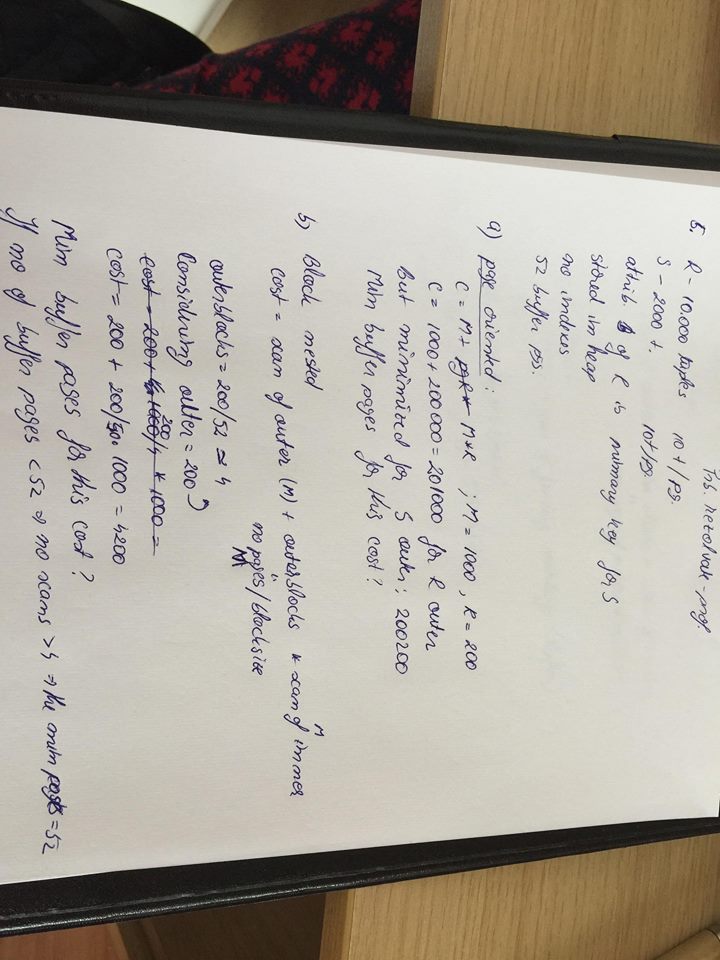 Prb. rezolvate - prof.
5. R - 10.000 tuples 10 t/pg.
S - 2000 t. 10t/pg.
attrib. b of R is primary key for S
stored in heap
no indexes
52 buffer pgs.
a) page oriented:
C = M + pgR* M*R ; M = 1000, R = 200
C = 1000 + 200 000 = 201000 for R outer
But minimized for S outer: 200200
Mim buffer pages for this cost?
b) Block nested
M
cost = scan of outer (M) + outerblocks * scan of inner
"
no pages/blocksize
M
outerblocks = 200/52 ≃ 4
Considering outer = 200
200
cost = 200 + 1000/4 * 1000 =
cost = 200 + 200/50 . 1000 = 4200
Mim buffer pages for this cost?
If no of buffer pages < 52 ⇒ no scans > 4 ⇒ the min pages = 52